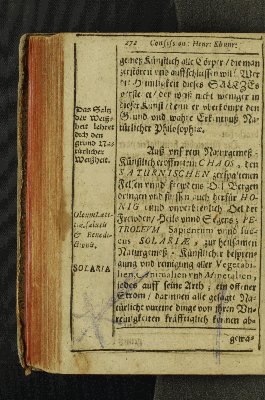 272 Confession: Henr: Khunr:
genetz Künstlich alle Cörper / die man
zerstören vnd auffschliessen wil! Wer
die Heimligkeit dieses SALTZES
verstehet / der weiß nicht weniger in
dieser Kunst / denn er vberkömpt den
Grund vnd wahre Erkentnuß Na-
türlicher Philosophiæ.
Das Saltz
der Weiß-
heit lehret
dich den
grund Na-
türlicher
Weißheit.
Auß vnserm Naturgemeß-
Künstlich eröffnetem CHAOS, den
SATURNISCHEN zerspaltenen
Felsen vnnd Bergen
dringen vnd fliessen auch herfür HO-
NIG vnnd Oel der
Frewden / Heils vnnd Segens; PE-
TROLEVM Sapientum vnnd
SOLARIÆ, zur heilsamen
Naturgemeß-Künstlicher
vnd reinigung aller Vegetabi-
lien, Animalien vnd Mineralien,
jedes auff seine Arth; ein offener
Strom / darinnen alle gesagte Na-
türliche dinge von jhren Vn-
reinigkeiten kräfftiglich können ab-
gewa-
Oleum Læti-
tiæ, salutis
& Benedi-
ctionis,
SOLARIA